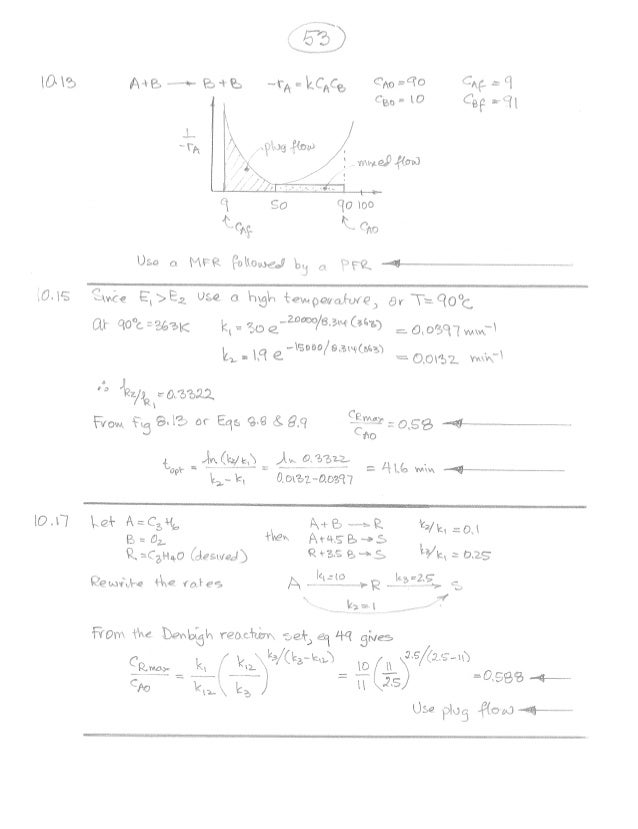 53
10.13 A+B → B+B -rA = kCACB CA0=90 CAf = 9
CB0=10 CBf = 91
1/-rA
plug flow
mixed flow
9 50 90 100
CAf CA0
Use a MFR followed by a PFR
10.15 Since E1>E2 use a high temperature, or T=90°C
at 90°C=363K k1=30e^-20000/8.314(363) = 0.0397 min^-1
k2=1.9e^-15000/8.314(363) = 0.0132 min^-1
∴ k2/k1=0.3322
From Fig 8.13 or Eqs 8.8 & 8.9 CRmax/CA0 = 0.58
topt = ln(k2/k1)/k2-k1 = ln 0.3322/0.0132-0.0397 = 41.6 min
10.17 Let A=C3H6 A+B → R k2/k1=0.1
B=O2 then A+4.5B → S
R=C3H4O (desired) R+3.5B → S k3/k1=0.25
Rewrite the rates A k1=10 → R k3=2.5 → S
k2=1
From the Denbigh reaction set, eq 49 gives
CRmax/CA0 = k1/k12 (k12/k3)^k3/(k3-k12) = 10/11 (11/2.5)^2.5/(2.5-11) =0.588
Use plug flow